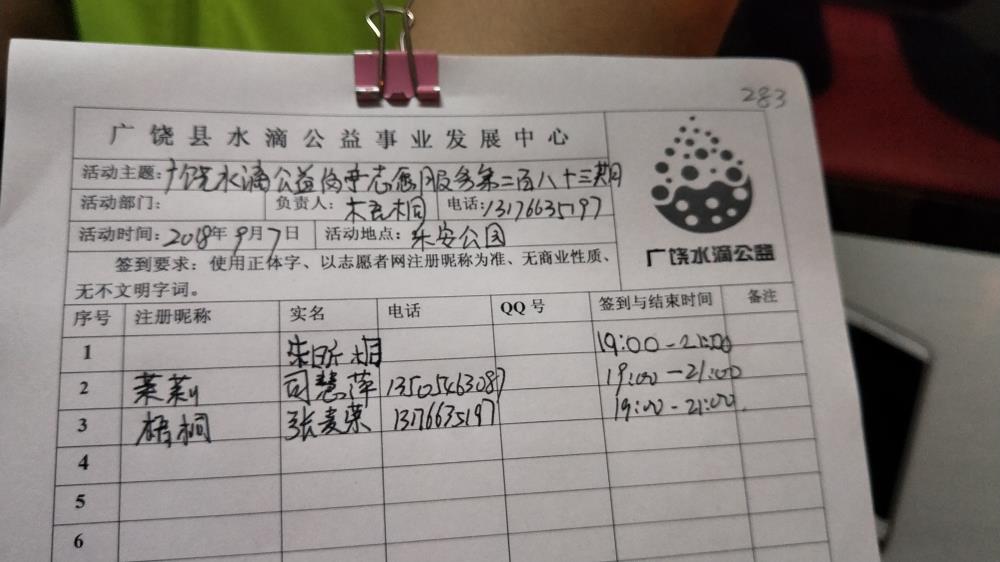 283
广饶县水滴公益事业发展中心
活动主题：广饶水滴公益 志愿服务第二百八十三期
活动部门： 负责人：梧桐 电话：13176635197
活动时间：2018年9月7日 活动地点：乐安公园
签到要求：使用正体字、以志愿者网注册昵称为准、无商业性质、
无不文明字词。
广饶水滴公益
序号 注册昵称 实名 电话 QQ号 签到与结束时间 备注
1 朱昕桐 19:00-21:00
2 茉莉 司慧萍 13505463087 19:00-21:00
3 梧桐 张麦荣 13176635197 19:00-21:00
4
5
6